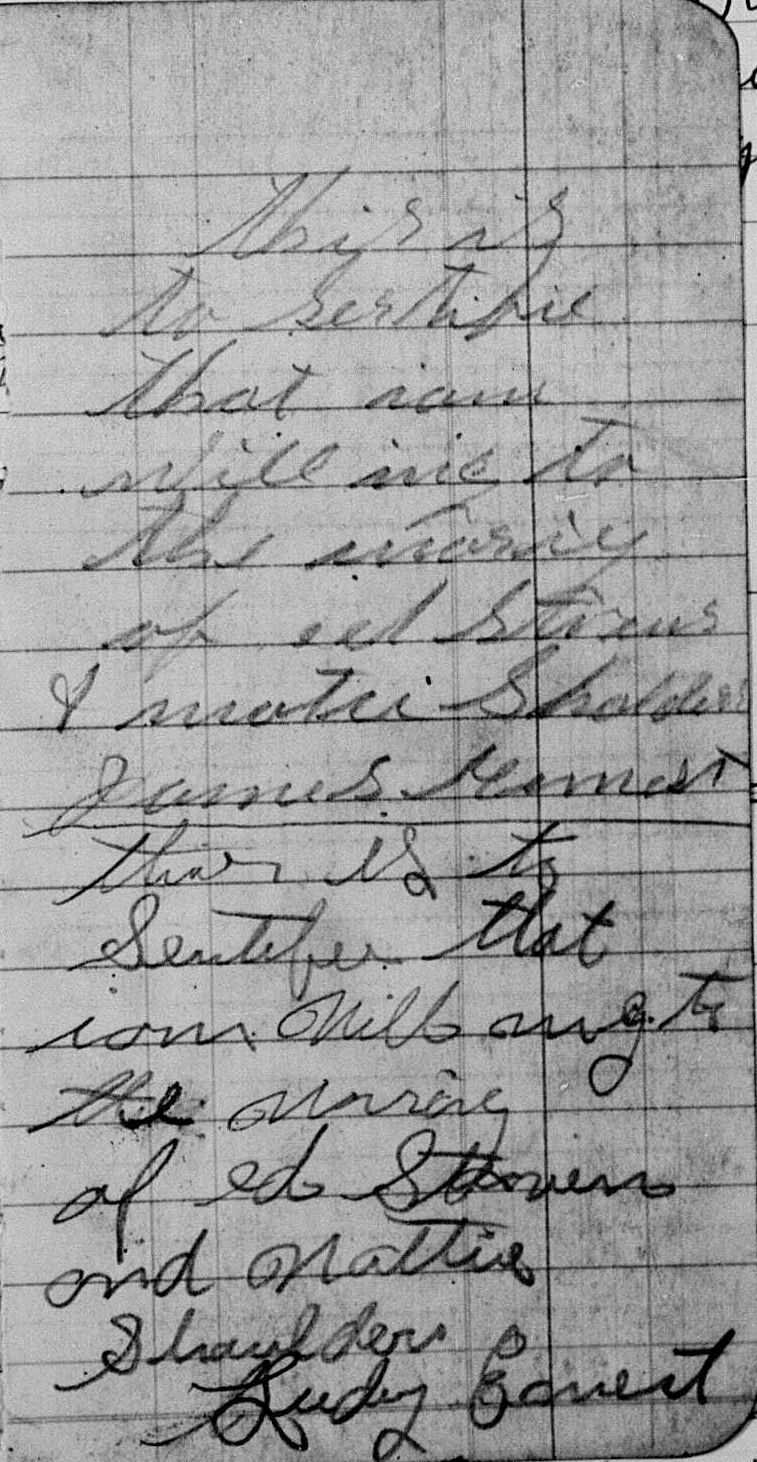 this is
to sertifie
that iam
willing to
the mariy
of ed Stivens
& matie Sholders
James
this is to
Sertifie that
iam Willang to
the Marrey
of ed Stevens
and Mattie
Shoulders
Ludy Earnest